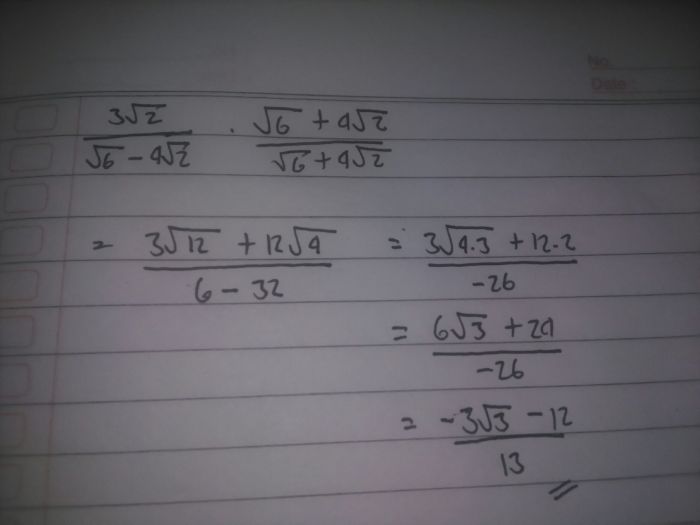 No.
Date :
3√2 / √6 - 4√2 . √6 + 4√2 / √6 + 4√2
= 3√12 + 12√4 / 6 - 32 = 3√4.3 + 12.2 / -26
= 6√3 + 24 / -26
= -3√3 - 12 / 13